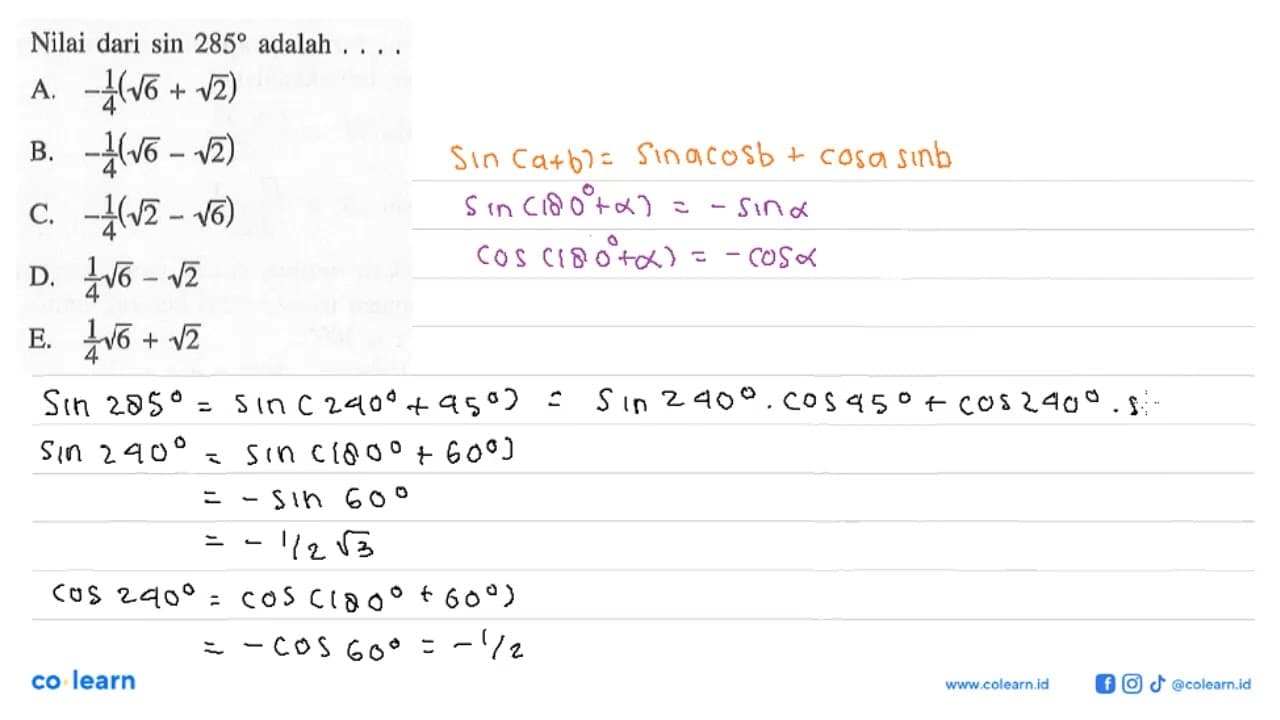 Nilai dari sin 285° adalah . . . .
A. -1/4(√6 + √2)
B. -1/4(√6 - √2)
C. -1/4(√2 - √6)
D. 1/4√6 - √2
E. 1/4√6 + √2
sin(a+b) = sin a cos b + cos a sin b
sin(180°+α) = - sin α
cos(180°+α) = - cos α
sin 285° = sin(240° + 45°) = sin 240° . cos 45° + cos 240° . s
sin 240° = sin(180° + 60°)
= - sin 60°
= - 1/2 √3
cos 240° = cos(180° + 60°)
= - cos 60° = - 1/2
co learn
www.colearn.id
@colearn.id